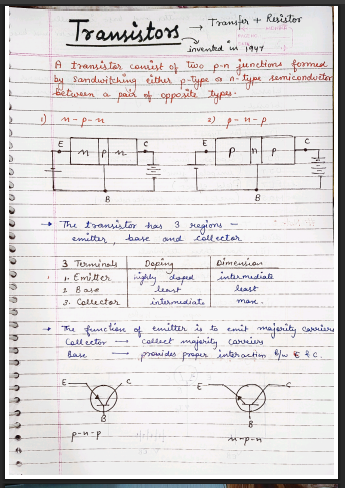 Transistors → Transfer + Resistor
invented in 1947
A transistor consist of two p-n junctions formed
by sandwitching either p-type or n-type semiconductor
between a pair of opposite types.
1) n-p-n 2) p-n-p
E n p n C E p n p C
B B
→ The transistor has 3 regions -
emitter, base and collector
3 Terminals Doping Dimension
1. Emitter highly doped intermediate
2. Base least least
3. Collector intermediate max.
→ The function of emitter is to emit majority carriers
Collector → collect majority carriers
Base → provides proper interaction b/w E & C.
E C E C
B B
p-n-p n-p-n